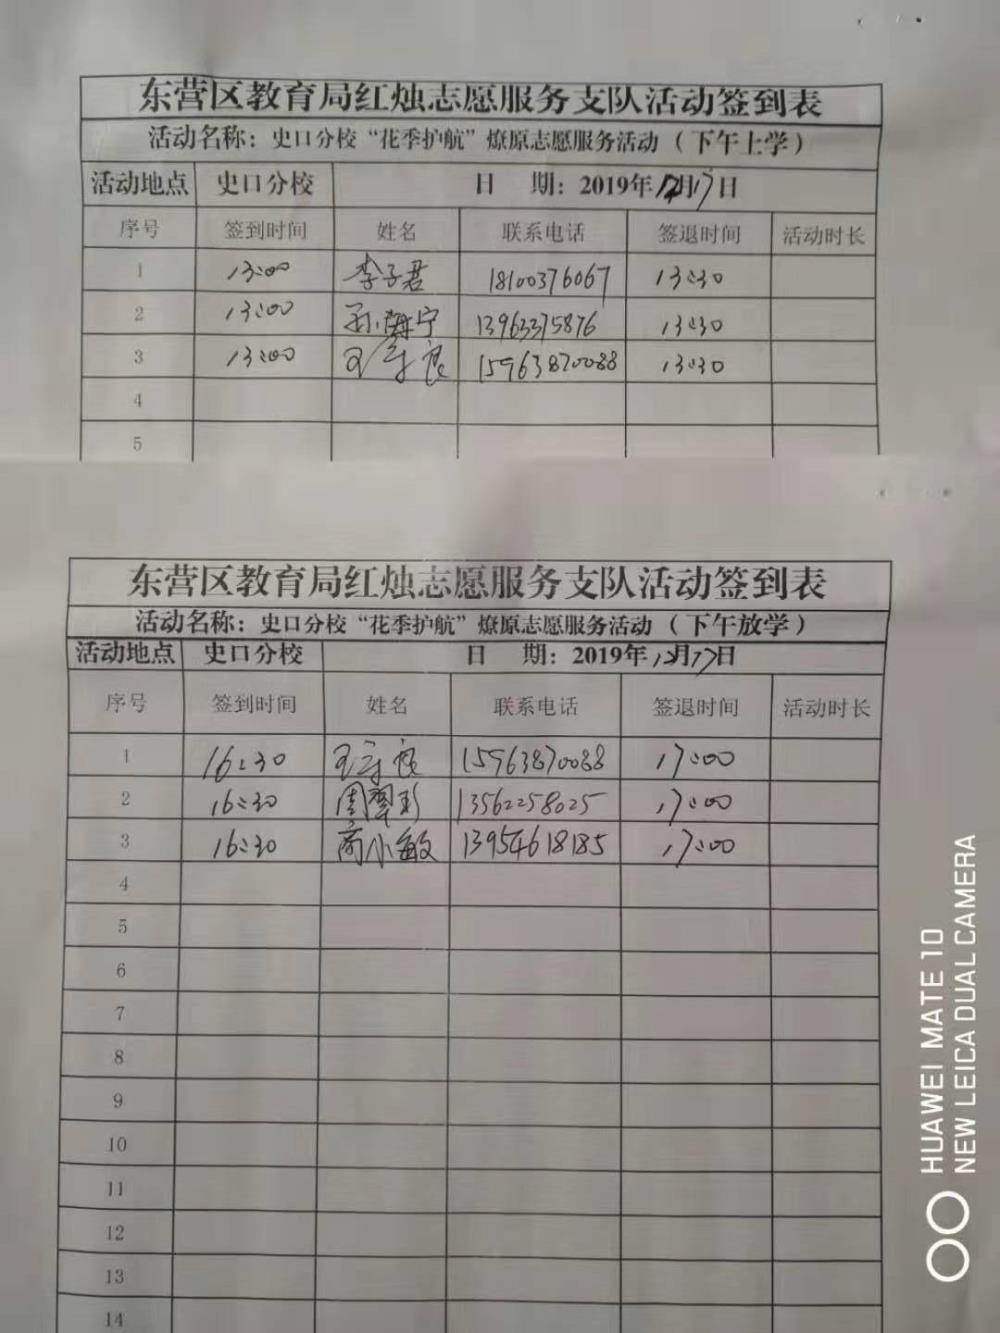 东营区教育局红烛志愿服务支队活动签到表
活动名称：史口分校“花季护航”燎原志愿服务活动（下午上学）
活动地点 史口分校 日 期：2019年12月17日
序号 签到时间 姓名 联系电话 签退时间 活动时长
1 13:00 李子君 18100376067 13:30
2 13:00 孙海宁 13963375876 13:30
3 13:00 王守良 15963870088 13:30
4
5
东营区教育局红烛志愿服务支队活动签到表
活动名称：史口分校“花季护航”燎原志愿服务活动（下午放学）
活动地点 史口分校 日 期：2019年12月17日
序号 签到时间 姓名 联系电话 签退时间 活动时长
1 16:30 王守良 15963870088 17:00
2 16:30 周翠彩 13562258025 17:00
3 16:30 商小敏 13954618185 17:00
4
5
6
7
8
9
10
11
12
13
14
HUAWEI MATE 10
NEW LEICA DUAL CAMERA